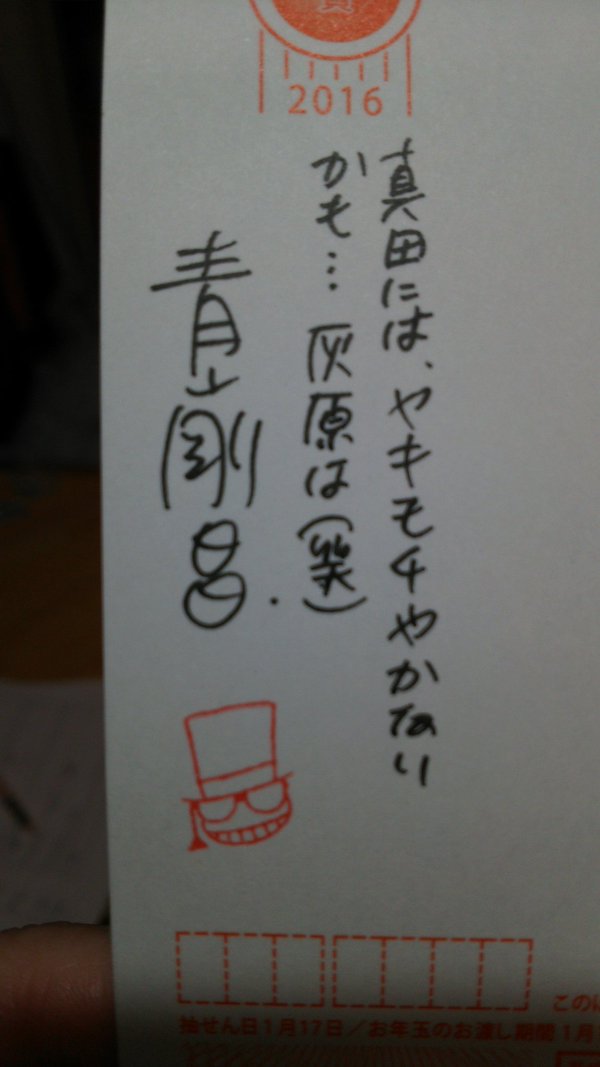 2016
真田には、ヤキモチやかない
かも… 灰原は(笑)
青山剛昌.
この
抽せん日1月17日/お年玉のお渡し期間1月